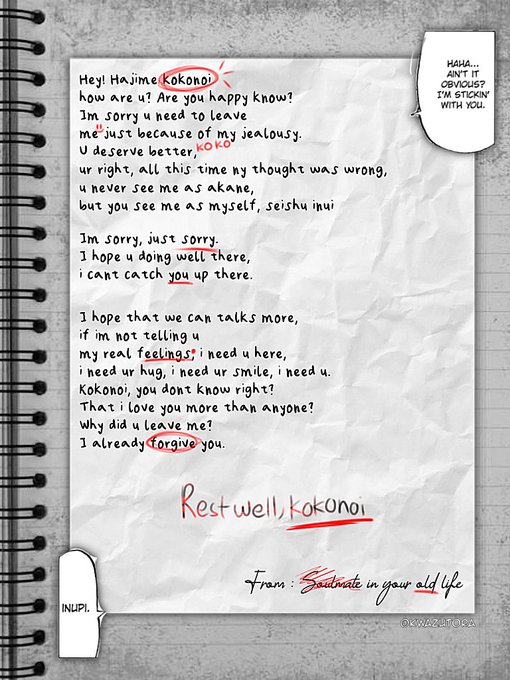 HAHA...
AIN'T IT
OBVIOUS?
I'M STICKIN'
WITH YOU.
Hey! Hajime kokonoi
how are u? Are you happy know?
Im sorry u need to leave
me" just because of my jealousy.
U deserve better, KOKO
ur right, all this time ny thought was wrong,
u never see me as akane,
but you see me as myself, seishu inui
Im sorry, just sorry.
I hope u doing well there,
i cant catch you up there.
I hope that we can talks more,
if im not telling u
my real feelings, i need u here,
i need ur hug, i need ur smile, i need u.
Kokonoi, you dont know right?
That i love you more than anyone?
Why did u leave me?
I already forgive you.
Rest well, kokonoi
From : Soulmate in your old life
INUPI.
OKWAZUTORA